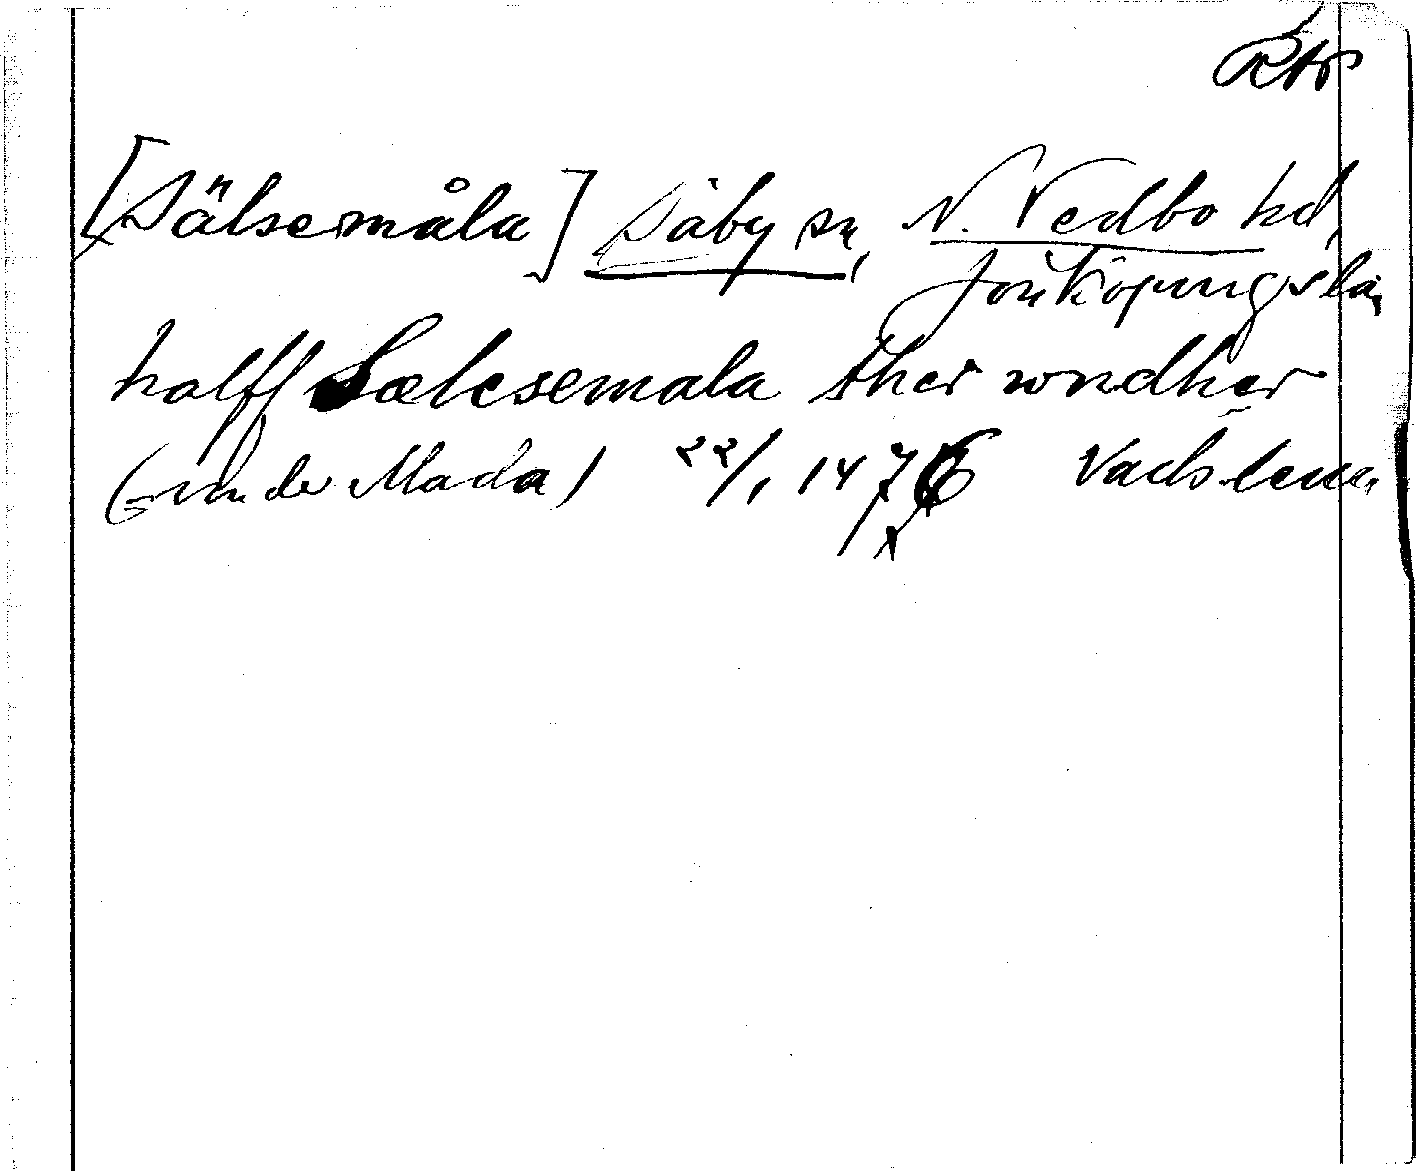 RAp
[Sälsemåla] Säby sn, N. Vedbo hd,
Jönköpings län
halff Sælesemala ther wndher
(= under Mada) 22/1 1476 Vadstena